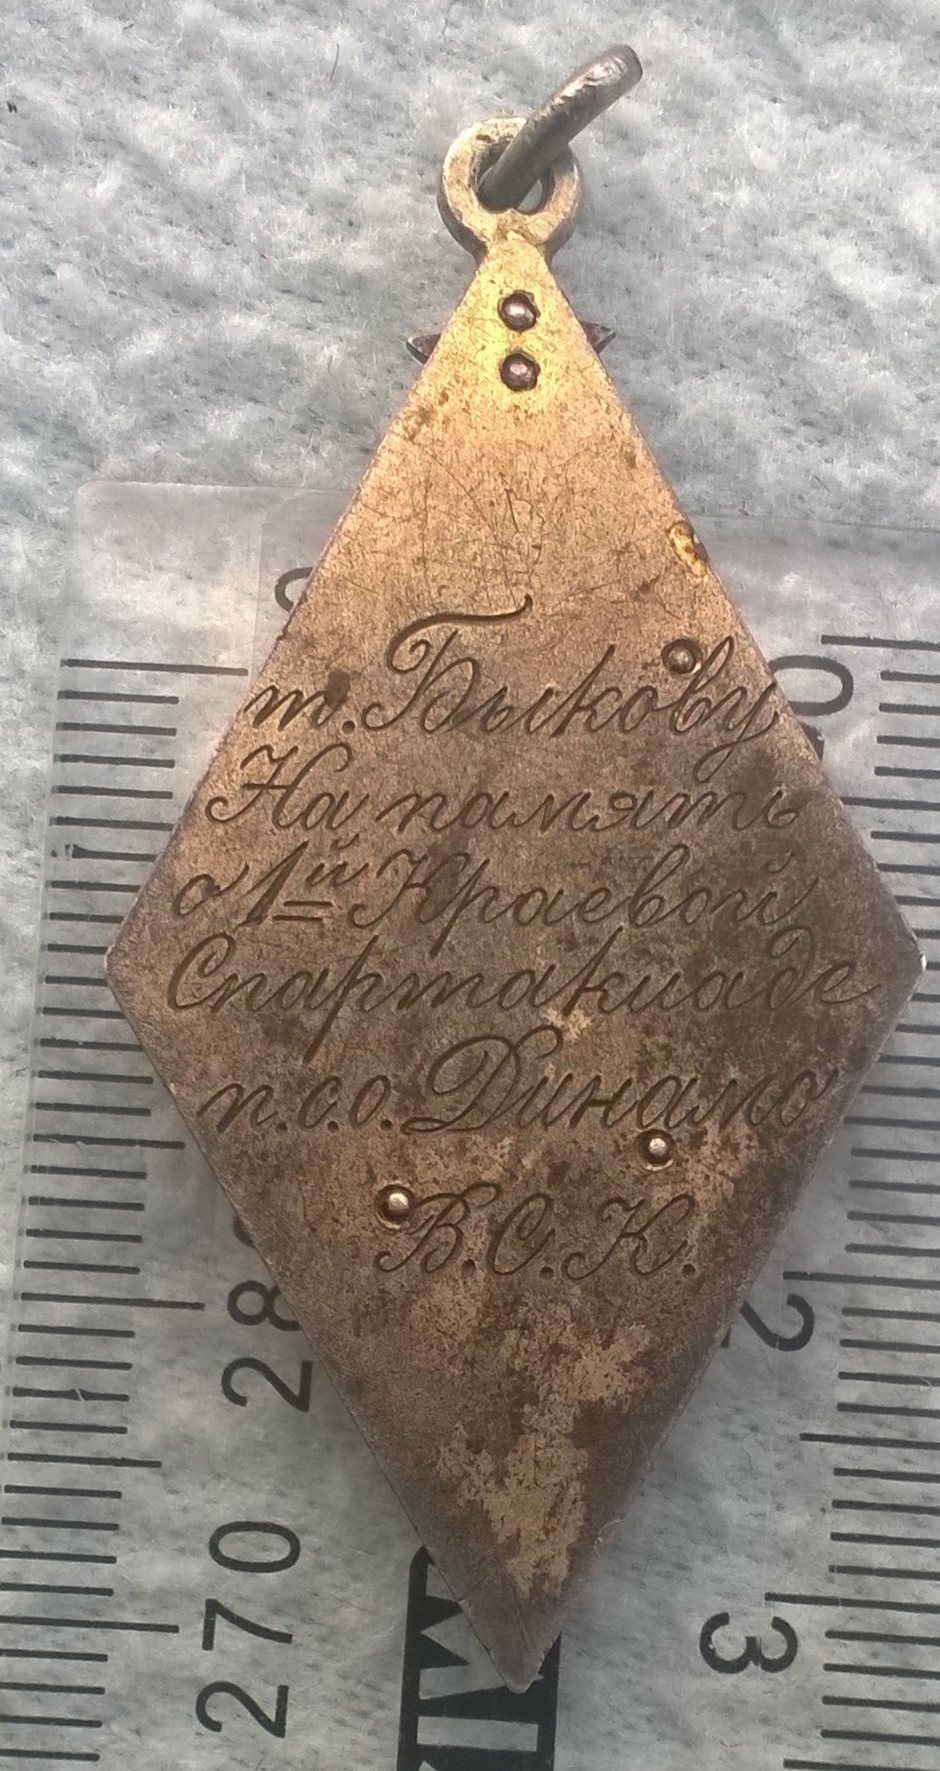 т. Быкову
На память
о 1й Краевой
Спартакиаде
п.с.о. Динамо
В.С.К.
28
270
2
3
0